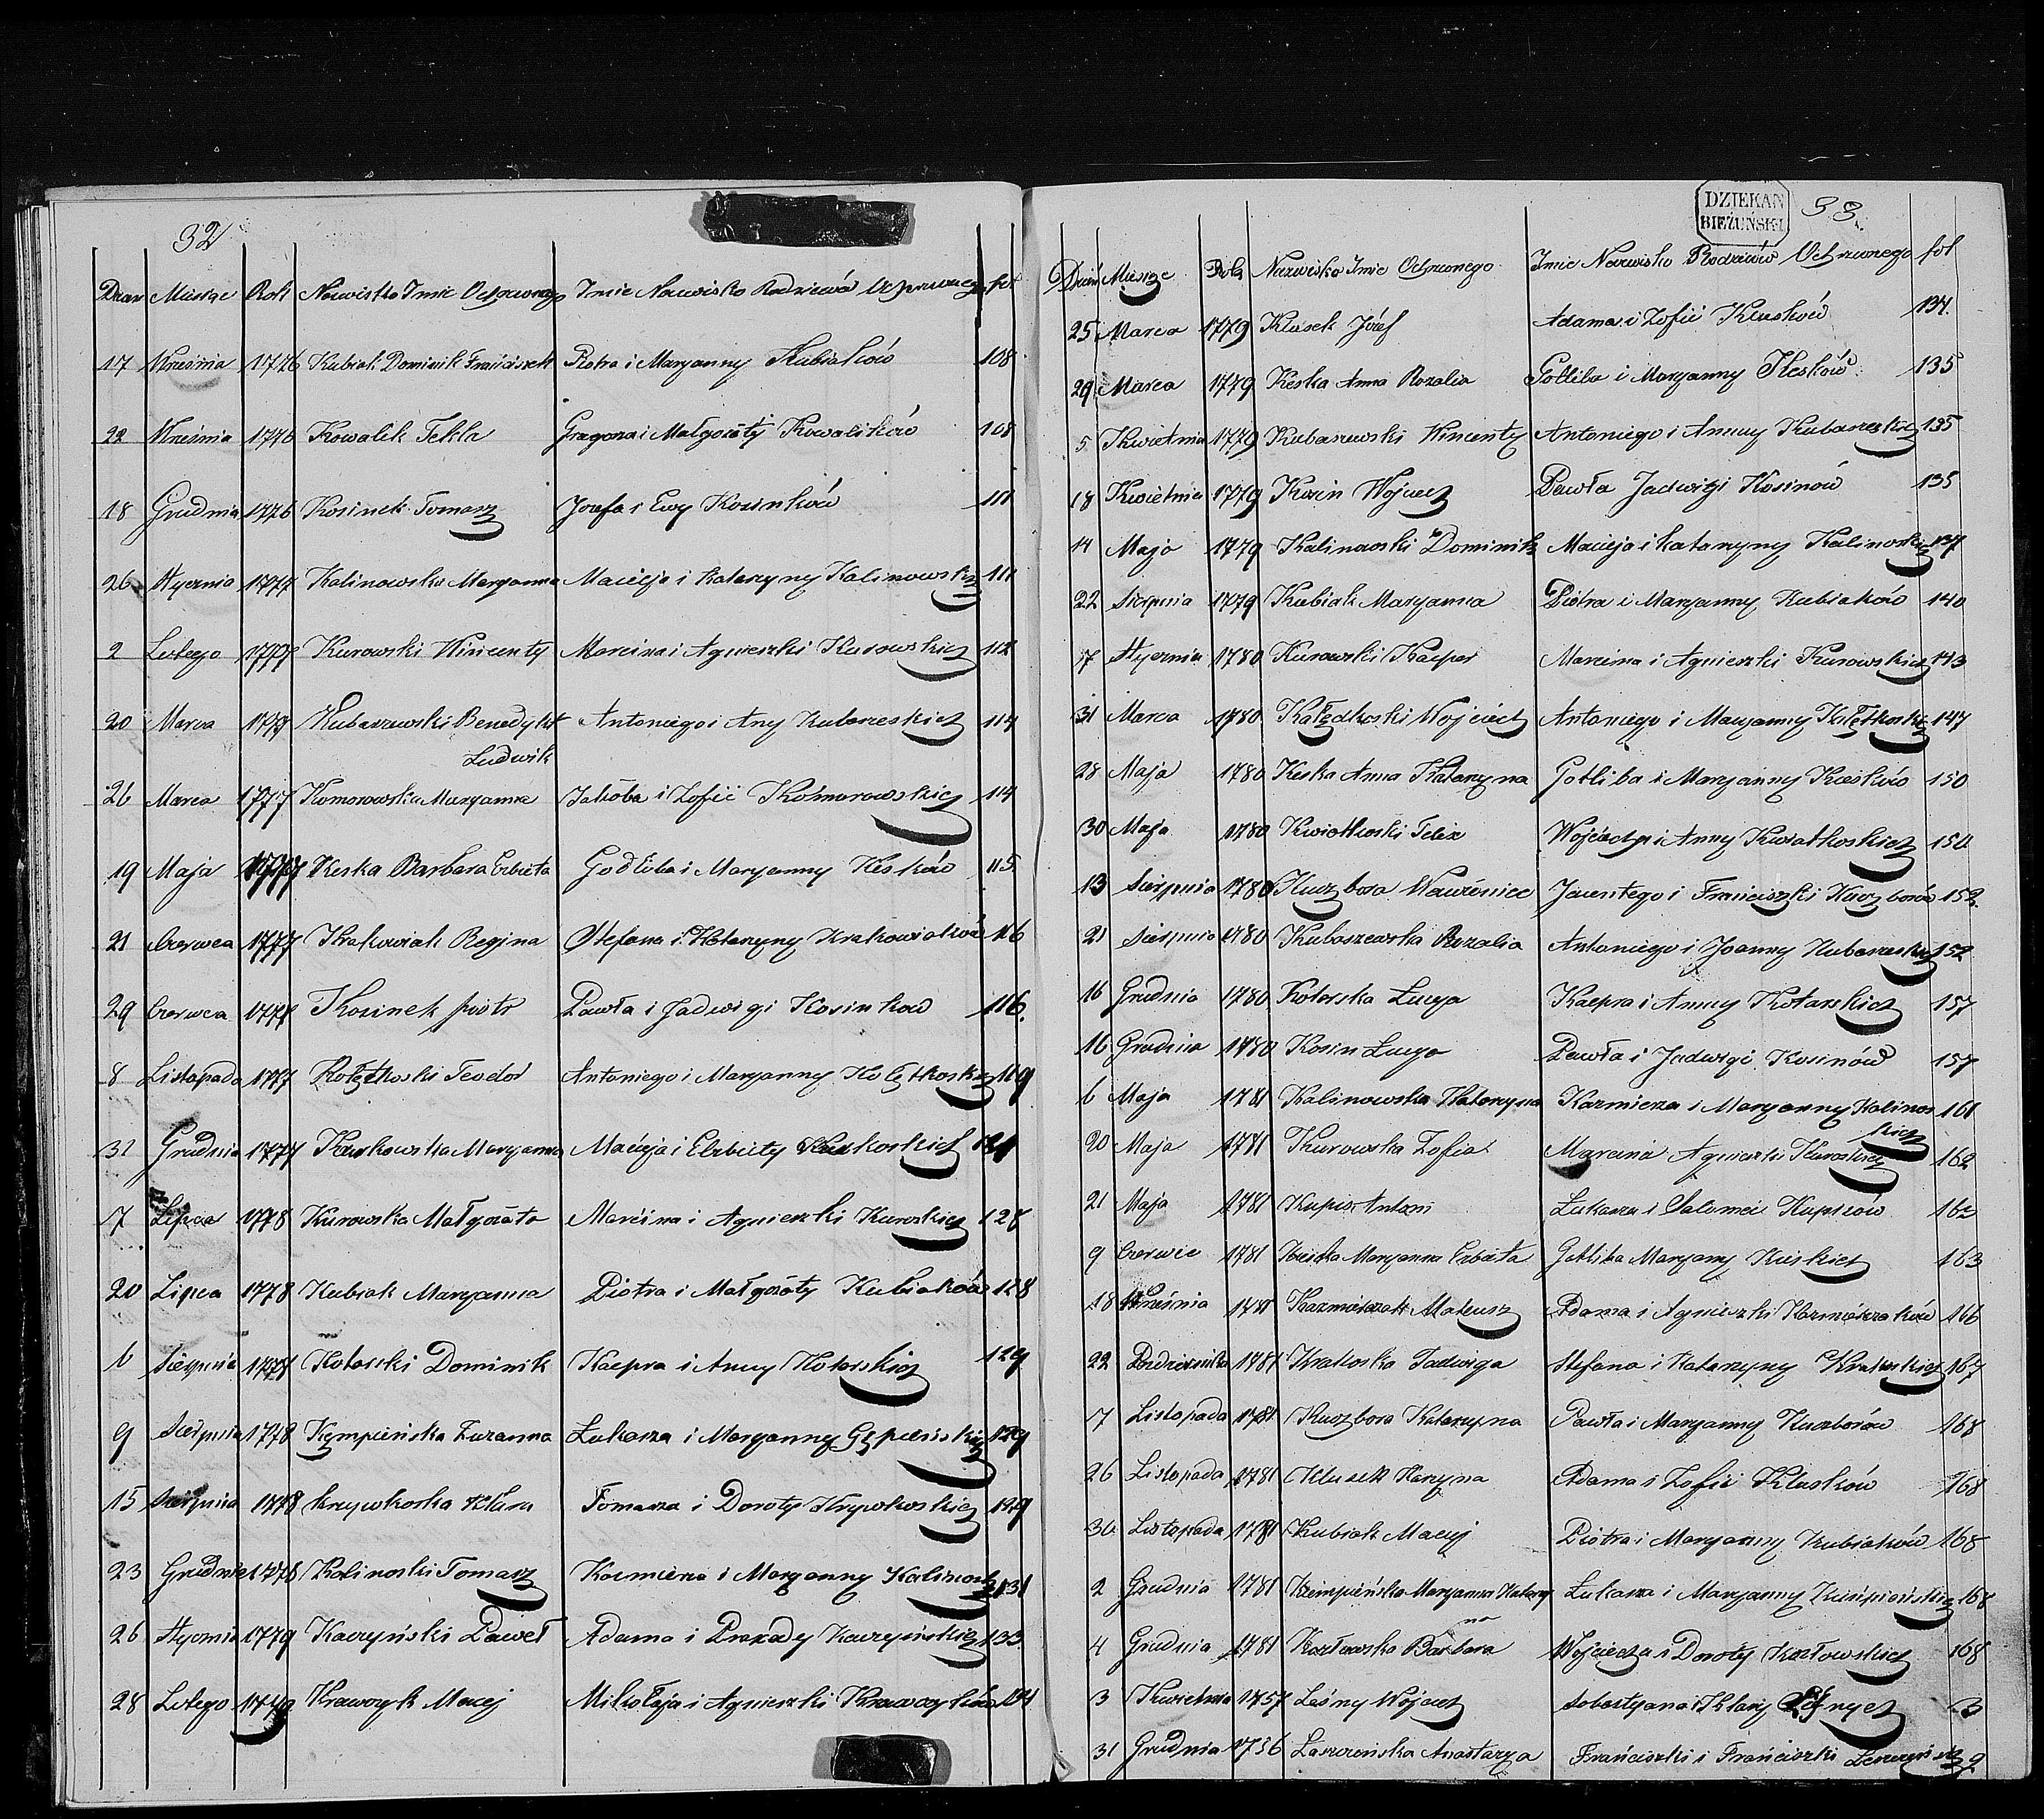 32
Dzień Miesiąc Rok Nazwisko Imie Ochrzconego Imie Nazwisko Rodziców Ochrzconego fol
17 Wrzesnia 1776 Kubiak Dominik Franciszek Piotra i Maryanny Kubiaków 108
22 Wrzesnia 1776 Kowalek Tekla Gregorza i Małgorzaty Kowalików 108
18 Grudnia 1776 Kosinek Tomasz Jozefa i Ewy Kosinków 111
26 Stycznia 1777 Kalinowska Maryanna Macieja i Katarzyny Kalinowskich 111
2 Lutego 1777 Kurowski Wincenty Marcina i Agnieszki Kurowskich 112
20 Marca 1777 Kubaszewski Benedykt Antoniego i Any Kubarzeskich 114
Ludwik
26 Marca 1777 Komorowska Maryanna Jakóba i Zofii Komorowskich 114
19 Maja 1777 Keska Barbara Erbieta Godliba i Maryanny Kesków 115
21 Czerwca 1777 Krakowiak Regina Stefana i Katarzyny Krakowiaków 116
29 Czerwca 1777 Kosinek Piotr Pawła i Jadwigi Kosinkow 116.
8 Listopada 1777 Kołętkoski Teodor Antoniego i Maryanny Kolętkoskich 119
31 Grudnia 1777 Kurkowska Maryanna Macieja i Elzbiety Kurkoskich 121
7 Lipca 1778 Kurowska Małgozata Marcina i Agnieszki Kuroskich 128
20 Lipca 1778 Kubiak Maryanna Piotra i Małgozoty Kubiaków 128
6 Sierpnia 1778 Kotarski Dominik Kacpra i Anny Kotorskich 129
9 Sierpnia 1778 Kympieńska Zuzanna Łukasza i Maryanny 129
15 Sierpnia 1778 Krzywkoska Klara Tomasza i Doroty Krzywkoskich 129
23 Grudnia 1778 Kalinoski Tomasz Kazmierza i Maryanny Kalinoskich 131
26 Stycznia 1779 Kaczyński Paweł Adama i Praxedy Kaczyńskich 133
28 Lutego 1779 Krawczyk Maciej Mikołaja i Agnieszki Krawczyków 134
DZIEKAN
BIEŻUŃSKI
33
Dzień Miesąc Rok Nazwisko Imie Ochrzconego Imie Nazwisko Rodziców Ochrzconego fol
25 Marca 1779 Klusek Józef Adama i Zofii Klusków 134.
29 Marca 1779 Keska Anna Rozalia Gotliba i Maryanny Kesków 135
5 Kwietnia 1779 Kubaszewski Wincenty Antoniego i Annny Kubarzeskich 135
18 Kwietnia 1779 Kosin Wojciech Pawła Jadwigi Kosinów 135
14 Maja 1779 Kalinowski Dominik Macieja i Katarzyny Kalinoskich 137
22 Sierpnia 1779 Kubiak Maryanna Piotra i Maryanny Kubiaków 140
7 Stycznia 1780 Kurowski Kacper Marcina i Agnieszki Kurowskich 143
31 Marca 1780 Kałędkoski Wojciech Antoniego i Maryanny Kałętkoskich 147
28 Maja 1780 Keska Anna Katarzyna Gotliba i Maryanny Kesków 150
30 Maja 1780 Kwiatkoski Felix Wojciecha i Anny Kwiatkoskich 150
13 Sierpnia 1780 Kuczbora Wawrzeniec Jacentego i Franciszki Kuczborów 152.
21 Sierpnia 1780 Kubaszewska Rozalia Antoniego i Joanny Kubarzeskich 152
16 Grudnia 1780 Kotorska Łucya Kacpra i Anny Kotarskich 157
16 Grudnia 1780 Kosin Łucya Pawła i Jadwigi Kosinów 157
6 Maja 1781 Kalinowska Katarzyna Kazmierza i Maryanny Kalinos 161
kich
20 Maja 1781 Kurowska Zofia Marcina Agnieszki Kuroskich 162
21 Maja 1781 Kupis Antoni Łukasza i Salomei Kupisów 162
9 Czerwca 1781 Keska Maryanna Erbieta Gotliba Maryany Keskich 163
18 Września 1781 Kazmierczak Mateusz Adama i Agnieszki Kazmierczaków 166
22 Października 1781 Krakoska Jadwiga Stefana i Katarzyny Krakoskich 167
7 Listopada 1781 Kuczbora Katarzyna Pawła i Maryanny Kuczborów 168
26 Listopada 1781 Klusek Adama i Zofii Klusków 168
30 Listopada 1781 Kubiak Maciej Piotra i Maryanny Kubiaków 168
2 Grudnia 1781 Kempieńska Maryanna Katarzy Łukasza i Maryanny Kempieńskich 168
na
4 Grudnia 1781 Kozłowska Barbara Wojciecha i Doroty Kozłowskich 168
3 Kwietnia 1757 Leśny Wojciech Sebastyana i Klary Leśnych 3
31 Grudnia 1756 Laszczeńska Anastazya Franciszki i Franciszki 9